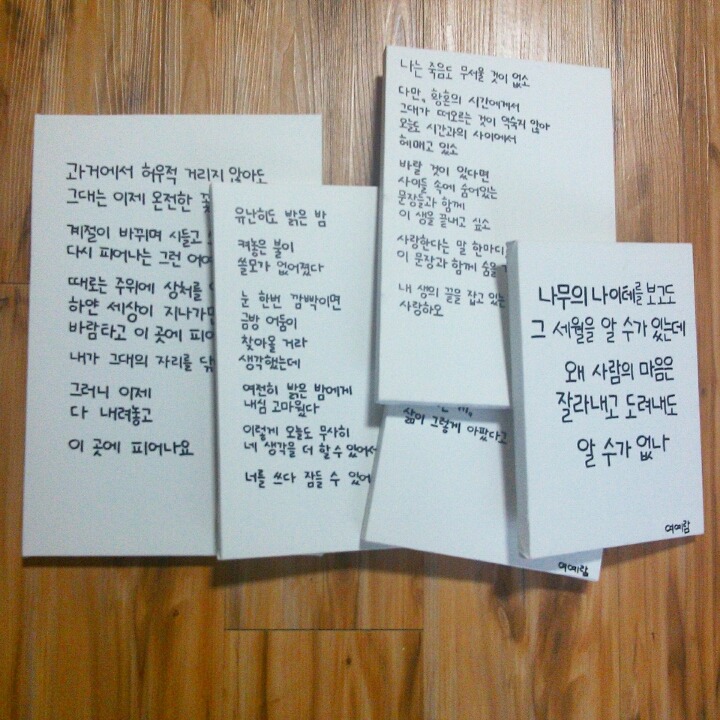 과거에서 허우적 거리지 않아도
그대는 이제 온전한 꽃
계절이 바뀌며 시들고
다시 피어나는 그런
때로는 주위에 상처를
하얀 세상이 지나가면
바람타고 이 곳에
내가 그대의 자리를
그러니 이제
다 내려놓고
이 곳에 피어나요
유난히도 밝은 밤
켜놓은 불이
쓸모가 없어졌다
눈 한번 깜빡이면
금방 어둠이
찾아올 거라
생각했는데
여전히 밝은 밤에게
내심 고마웠다
이렇게 오늘도 무사히
네 생각을 더 할 수 있어서
너를 쓰다 잠들 수 있어
나는 죽음도 무서울 것이 없소
다만, 황혼의 시간에게서
그대가 떠오르는 것이 익숙지 않아
오늘도 시간과의 사이에서
헤매고 있소
바랄 것이 있다면
사이들 속에 숨어있는
문장들과 함께
이 생을 끝내고 싶소
사랑한다는 말 한마디
이 문장과 함께 숨을
내 생의 끝을 잡고 있는
사랑하오
삶이 그렇게 아팠다고
여예람
나무의 나이테를 보고도
그 세월을 알 수가 있는데
왜 사람의 마음은
잘라내고 도려내도
알 수가 없나
여예람